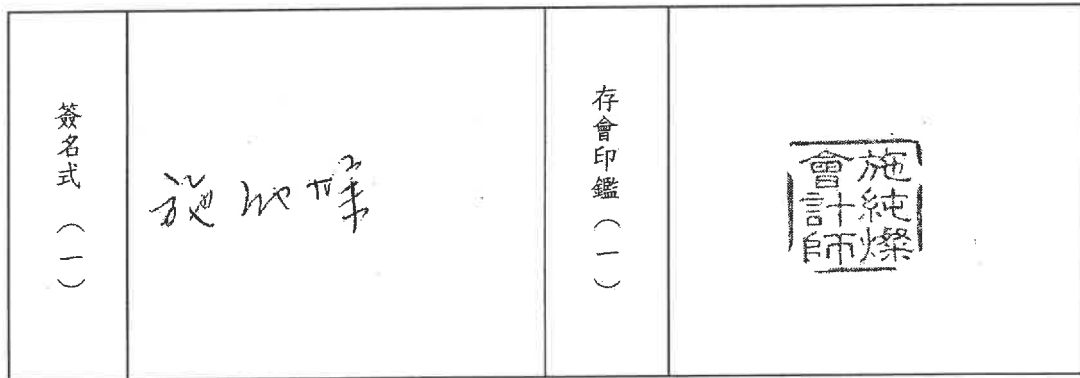 簽名式（一）
施純燦
存會印鑑（一）
施純燦
會計師